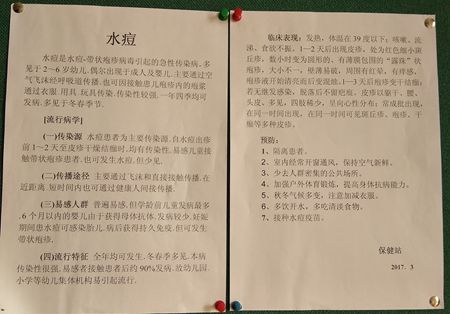 水痘
水痘是水痘-带状疱疹病毒引起的急性传染病.多
见于2~6岁幼儿.偶尔出现于成人及婴儿.主要通过空
气飞沫经呼吸道传播.也可因接触患儿疱疹内的疱浆
通过衣服.用具.玩具传染.传染性较强.一年四季均可
发病.多见于冬春季节.
[流行病学]
(一)传染源 水痘患者为主要传染源.自水痘出疹
前1~2天至皮疹干燥结痂时.均有传染性.易感儿童接
触带状疱疹患者.也可发生水痘.但少见.
(二)传播途径 主要通过飞沫和直接接触传播.在
近距离.短时间内也可通过健康人间接传播.
(三)易感人群 普遍易感.但学龄前儿童发病最多
.6个月以内的婴儿由于获得母体抗体.发病较少.妊娠
期间患水痘可感染胎儿.病后获得持久免疫.但可发生
带状疱疹.
(四)流行特征 全年均可发生.冬春季多见.本病
传染性很强.易感者接触患者后约90%发病.故幼儿园.
小学等幼儿集体机构易引起流行.
临床表现:发热,体温在39度以下;咳嗽、流
涕、食欲不振。1~2天后出现皮疹,处为红色细小斑
丘疹,数小时变为圆形的、有薄膜包围的"露珠"状
疱疹,大小不一,壁薄易破,周围有红晕,有痒感,
疱疹液开始清亮而后变混浊.1-3天后疱疹变干结痂;
若无继发感染,脱落后不留疤痕。皮疹以躯干、腰、
头皮、多见,四肢稀少,呈向心性分布;常成批出现,
在同一时间出现,在同一时间可见斑丘疹、疱疹、干
痂等多种皮疹。
预防:
1、隔离患者。
2、室内经常开窗通风,保持空气新鲜。
3、少去人群密集的公共场所。
4、加强户外体育锻炼,提高身体抗病能力。
5、秋冬气候多变,注意加减衣服。
6、多饮开水,多吃清淡食物。
7、接种水痘疫苗。
保健站
2017.3